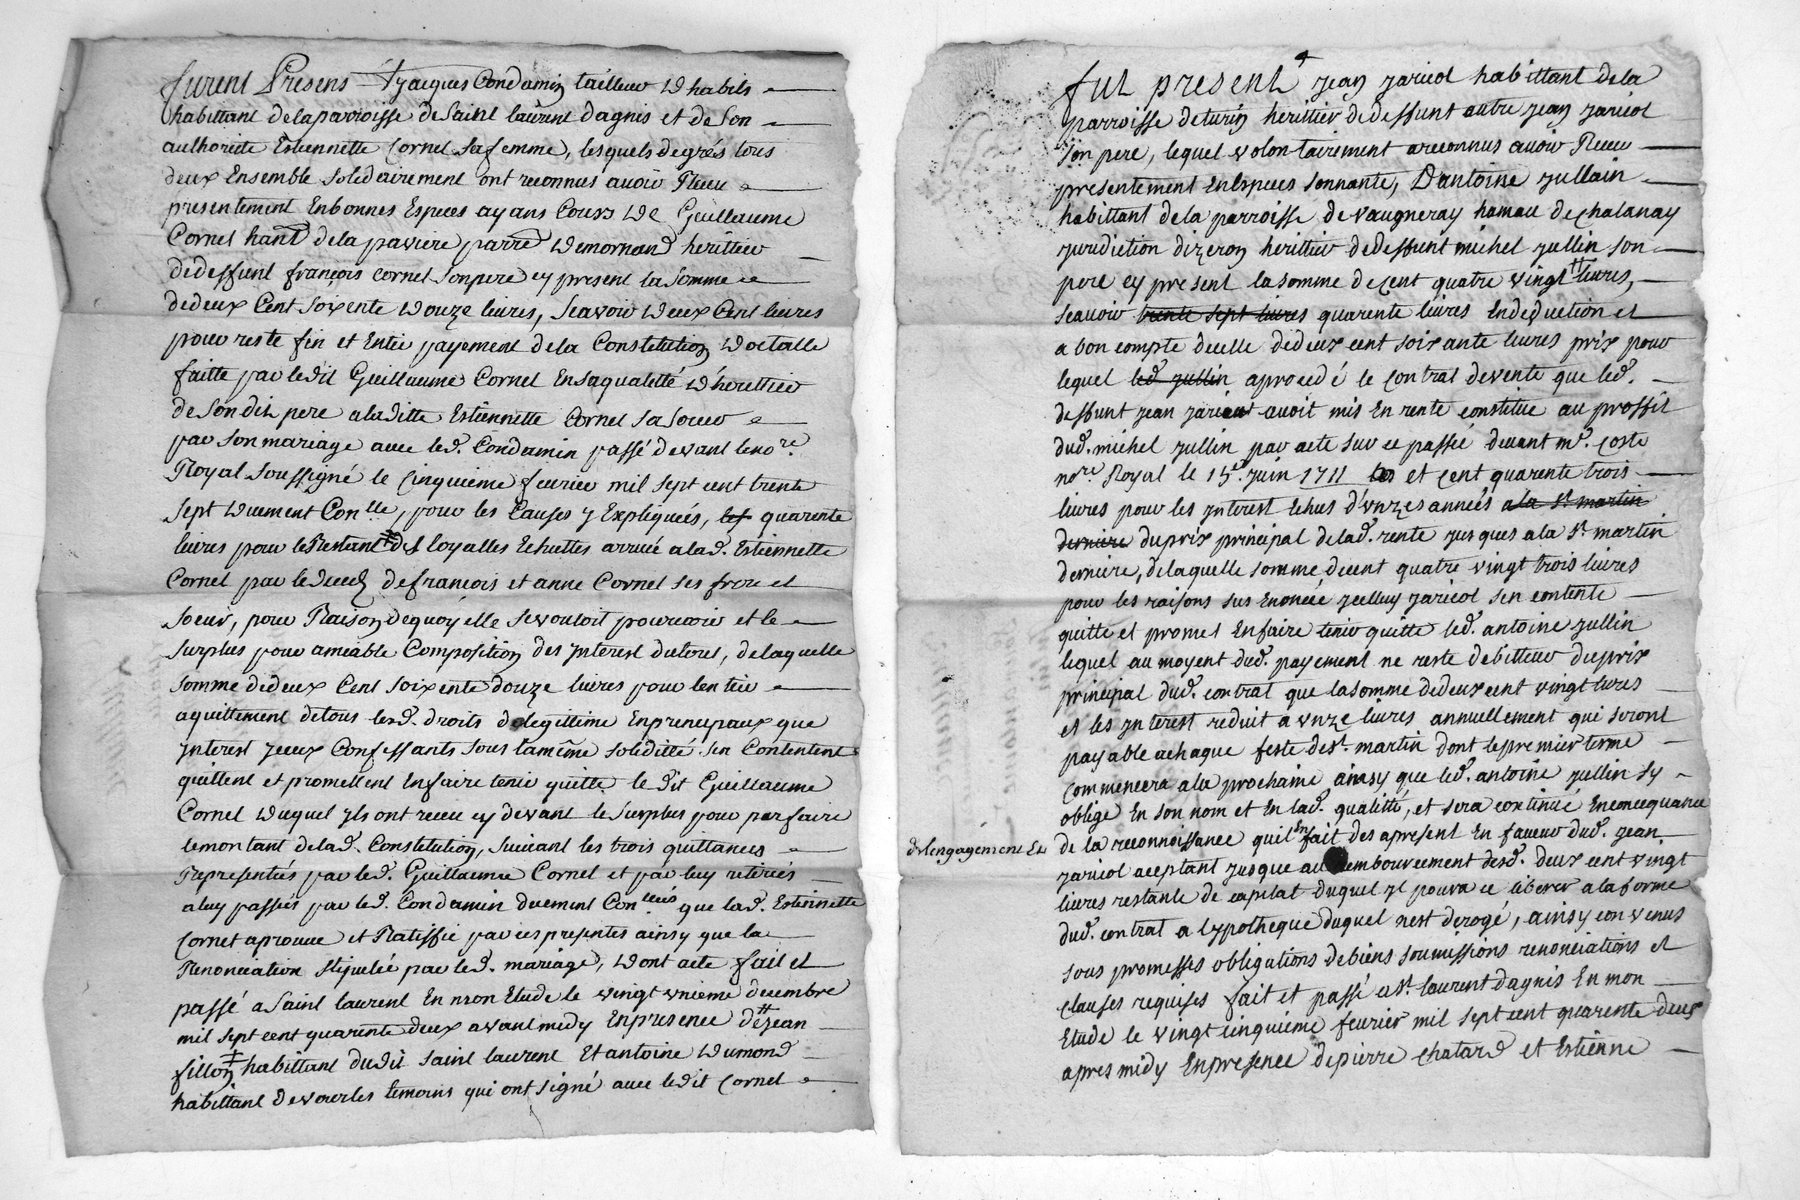 furent Presens Jacques Condamin tailleur d habits
habittant de la parroisse de Saint laurent d agnis et de Son
authorite Estiennette Cornet Sa femme, lesquels de grés tous
deux Ensemble Solidairement ont reconnus avoir Receu
presentement En bonnes Especes ayans Cours de Guillaume
Cornet hant de la paviere parre de mornand herittier
de deffunt françois Cornet Son pere cy present la Somme
de deux Cent Soixente douze livres, Scavoir deux Cent livres
pour reste fin et Entier payement de la Constitution doctalle
faitte par ledit Guillaume Cornet En sa qualitté d'herittier
de Son dit pere a laditte Estiennette Cornet Sa Soeur
par Son mariage avec led. Condamin passé devant le nore
Royal Soussigné le Cinquieme fevrier mil Sept cent trente
Sept duement Conlle, pour les Causes y Expliqueés, les quarente
livres pour le Restant des loyalles Echuttes arrivée a lad. Estiennette
Cornet par le deced de francois et anne Cornet Ses frere et
Soeur, pour Raison de quóy elle Se vouloit pourvoir et le
Surplus pour amiable Composition des jnterest du tout, de laquelle
Somme de deux Cent Soixente douze livres pour l entier
aquittement de tous lesd. droits de legittime En principaux que
jnterest jceux Confessants Sous la même Solidittée Sen Contentent
quittent et promettent En faire tenir quitte le dit Guillaume
Cornet duquel jls ont receu cy devant le Surplus pour parfaire
le montant de lad. Constitution, Suivant les trois quittances
Representées par led. Guillaume Cornet et par luy retirées
a luy passées par led. Condamin duement Conlleés que lad. Estiennette
Cornet aprouve et Ratiffie par ces presentes ainsy que la
Renonciation Stipulée par led. mariage, dont acte fait et
passé a Saint laurent En mon Etude le vingt unieme decembre
mil Sept cent quarente deux avant midy En presence de jean
fillon habittant du dit Saint laurent Et antoine dumond
habittant de vourles temoins qui ont Signé avec ledit Cornet
fut present jean jaricot habittant de la
parroisse de turin herittier de deffunt autre jean jaricot
Son pere, lequel volontairement a reconnus avoir Receu
presentement En Especes Sonnante, D'antoine jullain
habittant de la parroisse de vaugneray hamau de chalanay
jurediction dizeron herittier de deffunt michel jullin Son
pere cy present la Somme de cent quatre vingt tt livres,
Scavoir trente Sept livres quarente livres En deduction et
a bon compte d icelle de deux cent Soixante livres prix pour
lequel led. jullin a procedé le Contrat de vente que led.
deffunt jean jaricot avoit mis En rente Constitue au proffit
dud. michel jullin par acte Sur ce passée devant me. Coste
nore Royal le 15e. juin 1711 et Cent quarente trois
livres pour les jnterest Echus d'vnzes années a la St martin
derniere du prix principal de lad. rente jusques a la St martin
derniere, de laquelle Somme de cent quatre vingt trois livres
pour les raisons Sus Enonceé jcelluy jaricot Sen contente
quitte et promet En faire tenir quitte led. antoine jullin
lequel au moyent dud. payement ne reste debitteur du prix
principal dud. contrat que la Somme de deux cent vingt livres
et les jnterest reduit a vnze livres annuellement qui Seront
payable a chaque feste de St. martin dont le premier terme
Commencera a la prochaine ainsy que led. antoine jullin Sy
oblige En Son nom et En lad. qualitté, et Sera continué En concequance
de la reconnoissance quil En fait des a present En faveur dud. jean
d l'engagement Et
jaricot aceptant jusque au rembourcement desd. deux cent vingt
livres restante de capital duquel jl pourra ce liberer a la forme
dud. contrat a lypotheque duquel nest derogé, ainsy convenus
Sous promesses obligations de biens Soumissions renonciations et
Clauses requises fait et passé a St. laurent d agnis En mon
Etude le vingt cinquieme fevrier mil Sept cent quarente deux
apres midy En presence de pierre Chatard et Estienne